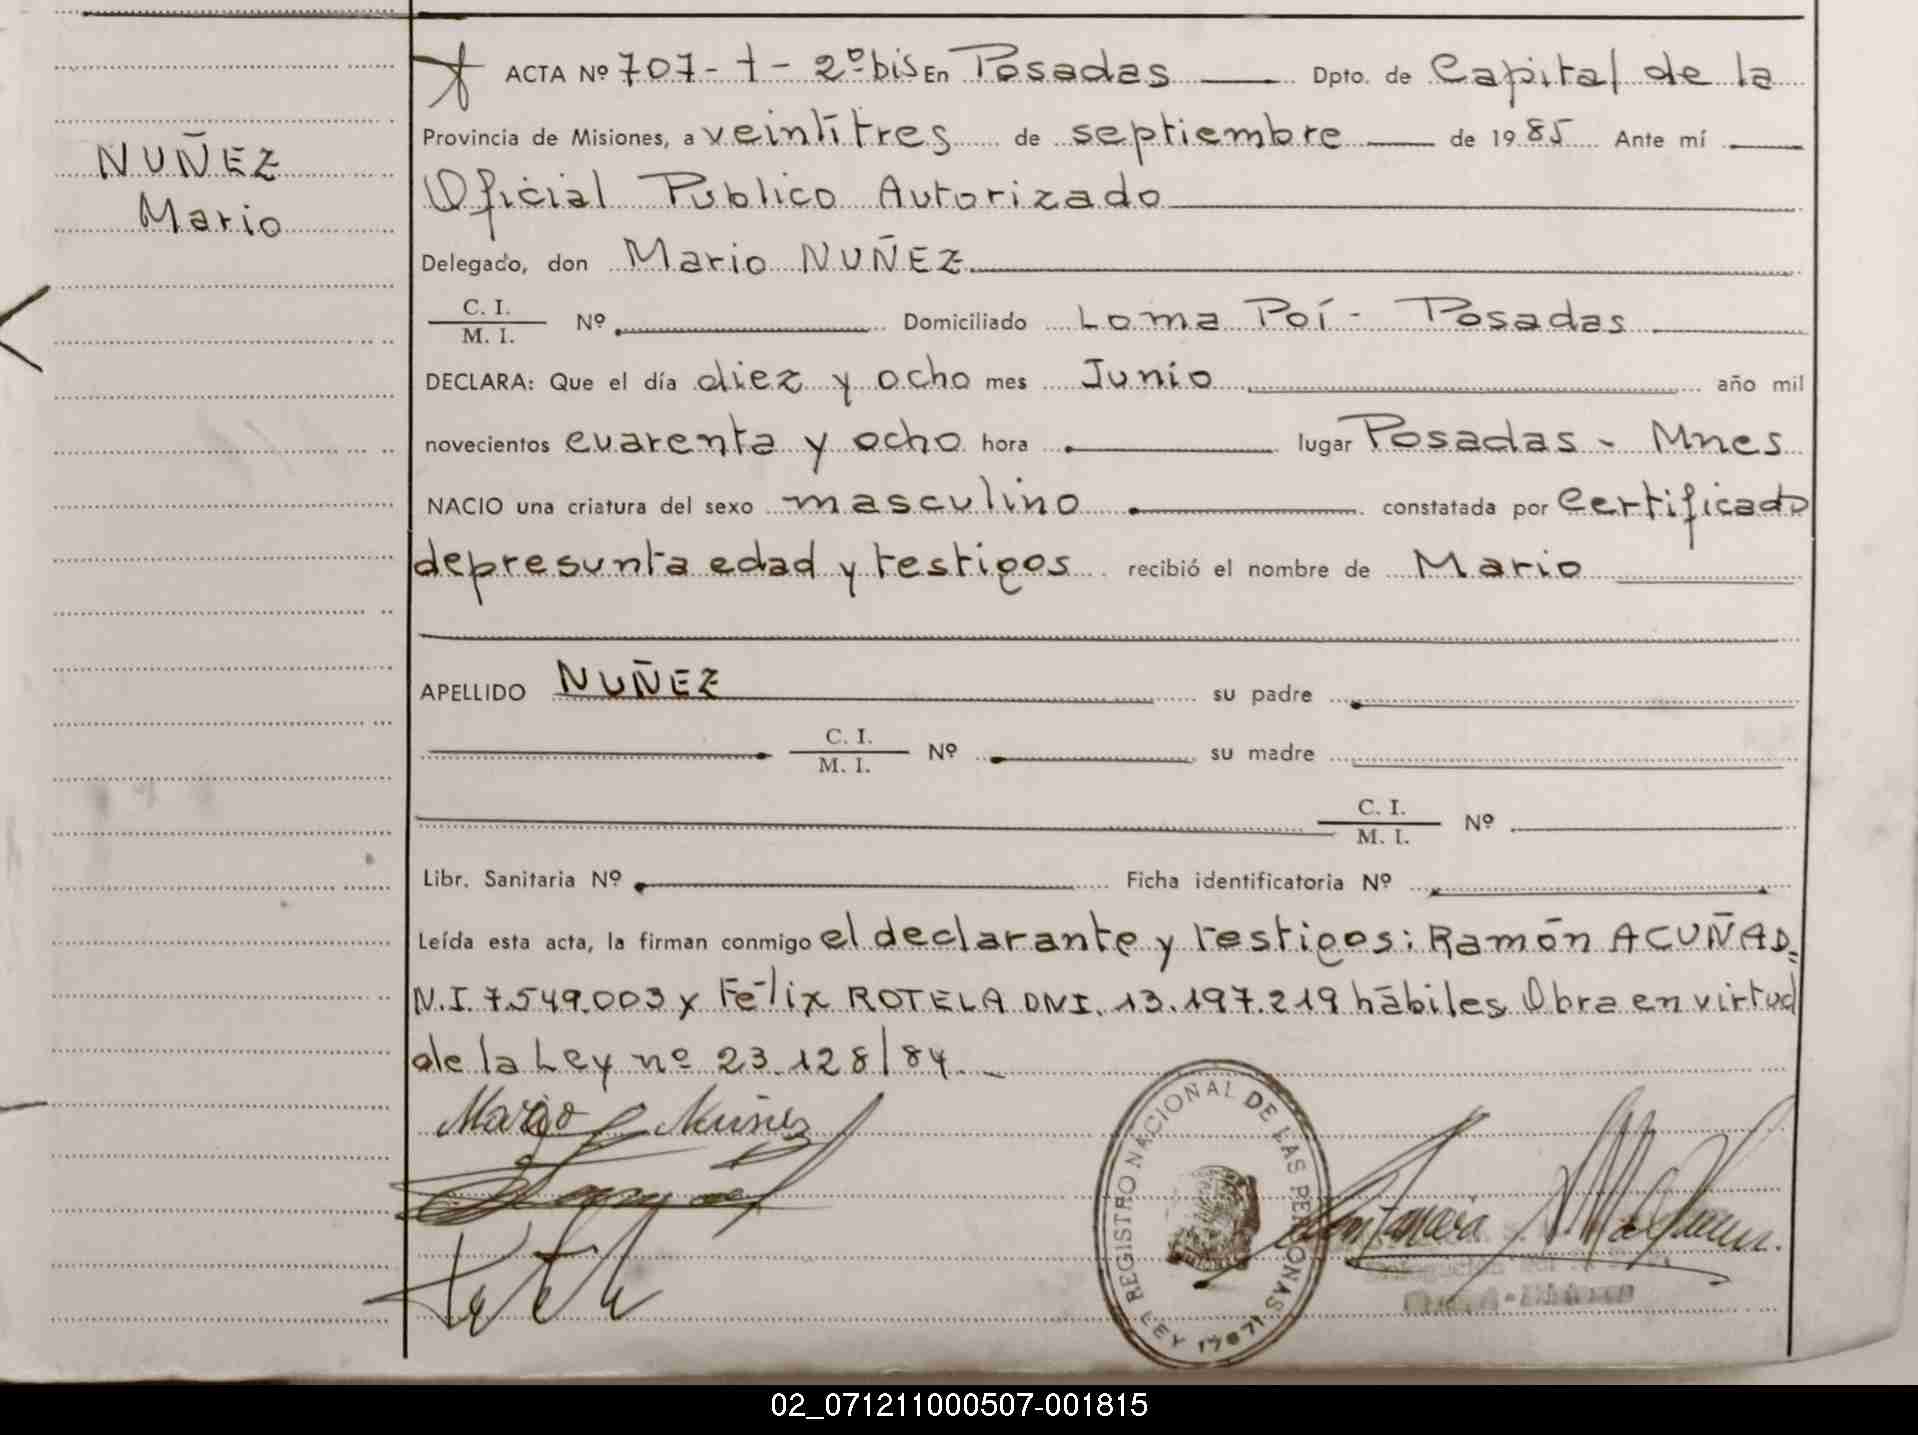 ACTA Nº 707 - t - 2º bis En Posadas Dpto. de Capital de la
Provincia de Misiones, a veintitres de septiembre de 1985 Ante mí
NUÑEZ
Mario
Oficial Publico Autorizado
Delegado, don Mario NUÑEZ
C. I.
M. I. Nº Domiciliado Loma Poí - Posadas
DECLARA: Que el día diez y ocho mes Junio año mil
novecientos cuarenta y ocho hora lugar Posadas - Mnes
NACIO una criatura del sexo masculino constatada por Certificado
de presunta edad y testigos recibió el nombre de Mario
APELLIDO NUÑEZ su padre
C. I.
M. I. Nº su madre
C. I.
M. I. Nº
Libr. Sanitaria Nº Ficha identificatoria Nº
Leída esta acta, la firman conmigo el declarante y testigos: Ramón ACUÑA D.
N.I. 7.549.003 y Félix ROTELA DNI. 13.197.219 hábiles Obra en virtud
de la Ley nº 23.128/84.-
Mario Nuñez
REGISTRO NACIONAL DE LAS PERSONAS
LEY 17671
02_071211000507-001815